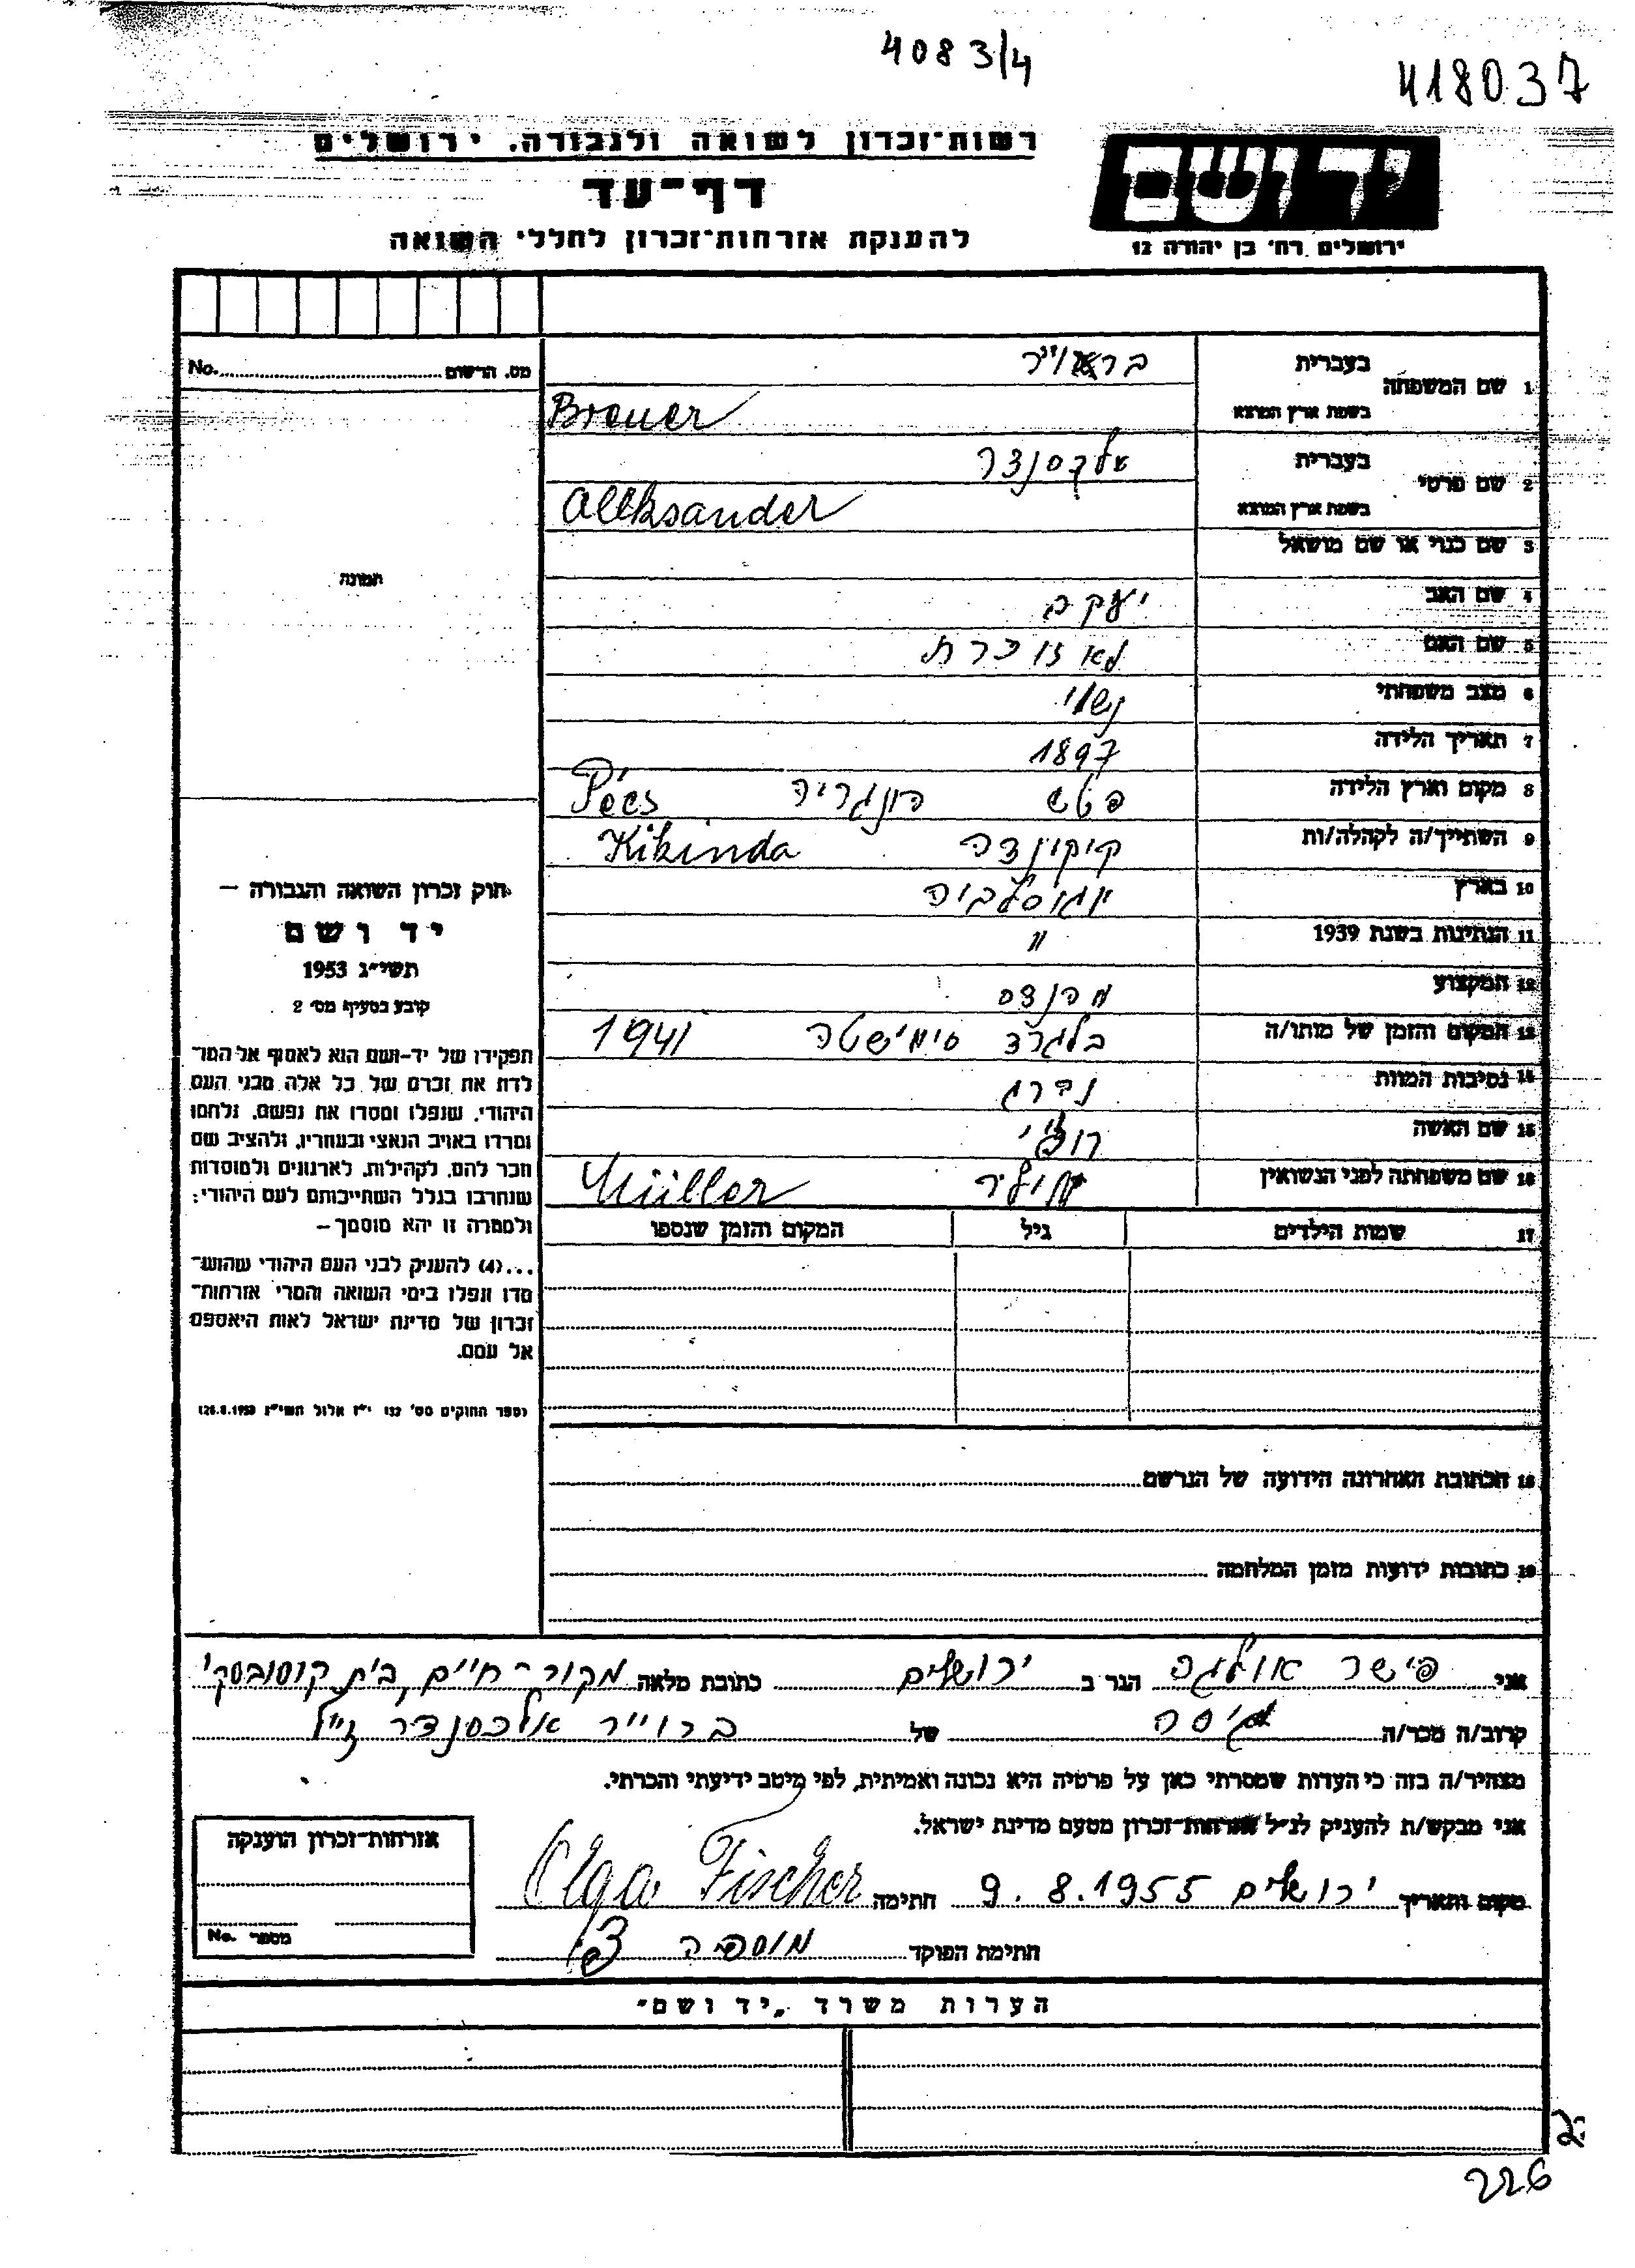 4083/4
418037
רשות־זכרון לשואה ולגבורה, ירושלים
דף־עד
להענקת אזרחות־זכרון לחללי השואה
יד ושם
ירושלים, רח' בן יהודה 12
מס. הרשום No.
תמונה
חוק זכרון השואה והגבורה —
יד ושם
תשי״ג 1953
קובע בסעיף מס׳ 2
תפקידו של יד־ושם הוא לאסוף אל המו־
לדת את זכרם של כל אלה מבני העם
היהודי, שנפלו ומסרו את נפשם, נלחמו
ומרדו באויב הנאצי ובעוזריו, ולהציב שם
וזכר להם, לקהילות, לארגונים ולמוסדות
שנחרבו בגלל השתייכותם לעם היהודי;
ולמטרה זו יהא מוסמך —
...(4) להעניק לבני העם היהודי שהוש־
מדו ונפלו בימי השואה והמרי אזרחות־
זכרון של מדינת ישראל לאות היאספם
אל עמם.
(ספר החוקים מס׳ 132 י״ז אלול תשי״ג 28.8.1953)
1 שם המשפחה בעברית בראוייר
בשפת ארץ המוצא Breuer
2 שם פרטי בעברית אלקסנדר
בשפת ארץ המוצא Alleksander
3 שם כנוי או שם מושאל
4 שם האב יעקב
5 שם האם לא זוכרת
6 מצב משפחתי נשוי
7 תאריך הלידה 1897
8 מקום וארץ הלידה פטש הונגריה Pécs
9 השתייך/ה לקהלה/ות קיקונדה Kikinda
10 בארץ יוגוסלביה
11 הנתינות בשנת 1939 "
12 המקצוע מהנדס
13 המקום והזמן של מותו/ה בלגרד סימישטה 1941
14 נסיבות המוות נהרג
15 שם האשה רוז׳י
16 שם משפחתה לפני הנשואין מילר Müller
17 שמות הילדים גיל המקום והזמן שנספו
18 הכתובת האחרונה הידועה של הנרשם
19 כתובות ידועות מזמן המלחמה
אני פישר אולגה הגר ב ירושלים כתובת מלאה מקור־חיים, בית קוסובסקי
קרוב/ה מכר/ה גיסה של ברוייר אלכסנדר ז״ל
מצהיר/ה בזה כי העדות שמסרתי כאן על פרטיה היא נכונה ואמיתית, לפי מיטב ידיעתי והכרתי.
אני מבקש/ת להעניק לנ״ל אזרחות־זכרון מטעם מדינת ישראל.
מקום ותאריך ירושלים 9.8.1955 חתימה Olga Fischer
חתימת הפוקד
אזרחות־זכרון הוענקה
מספר No.
הערות משרד „יד ושם״
226